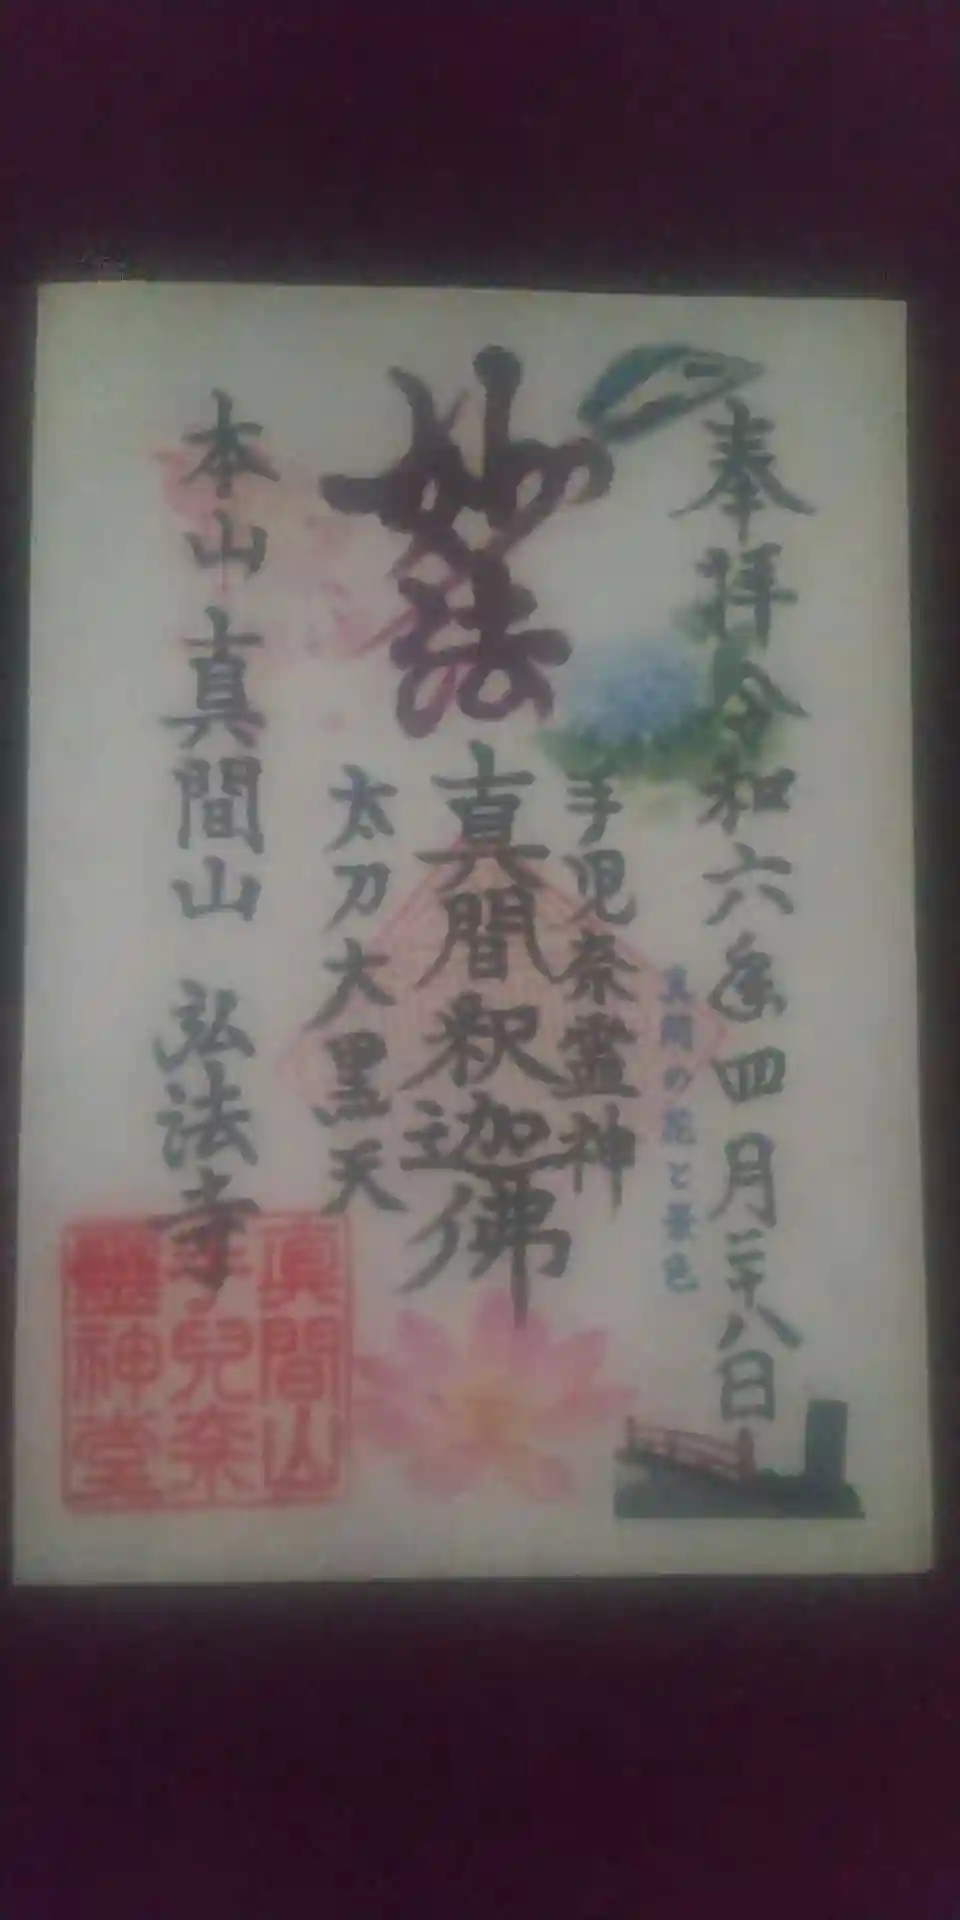 奉拝 令和六年四月二十八日
真間の花と景色
手児奈霊神
妙法
真間釈迦佛
太刀大黒天
本山 真間山 弘法寺
真間山
手兒奈
靈神堂